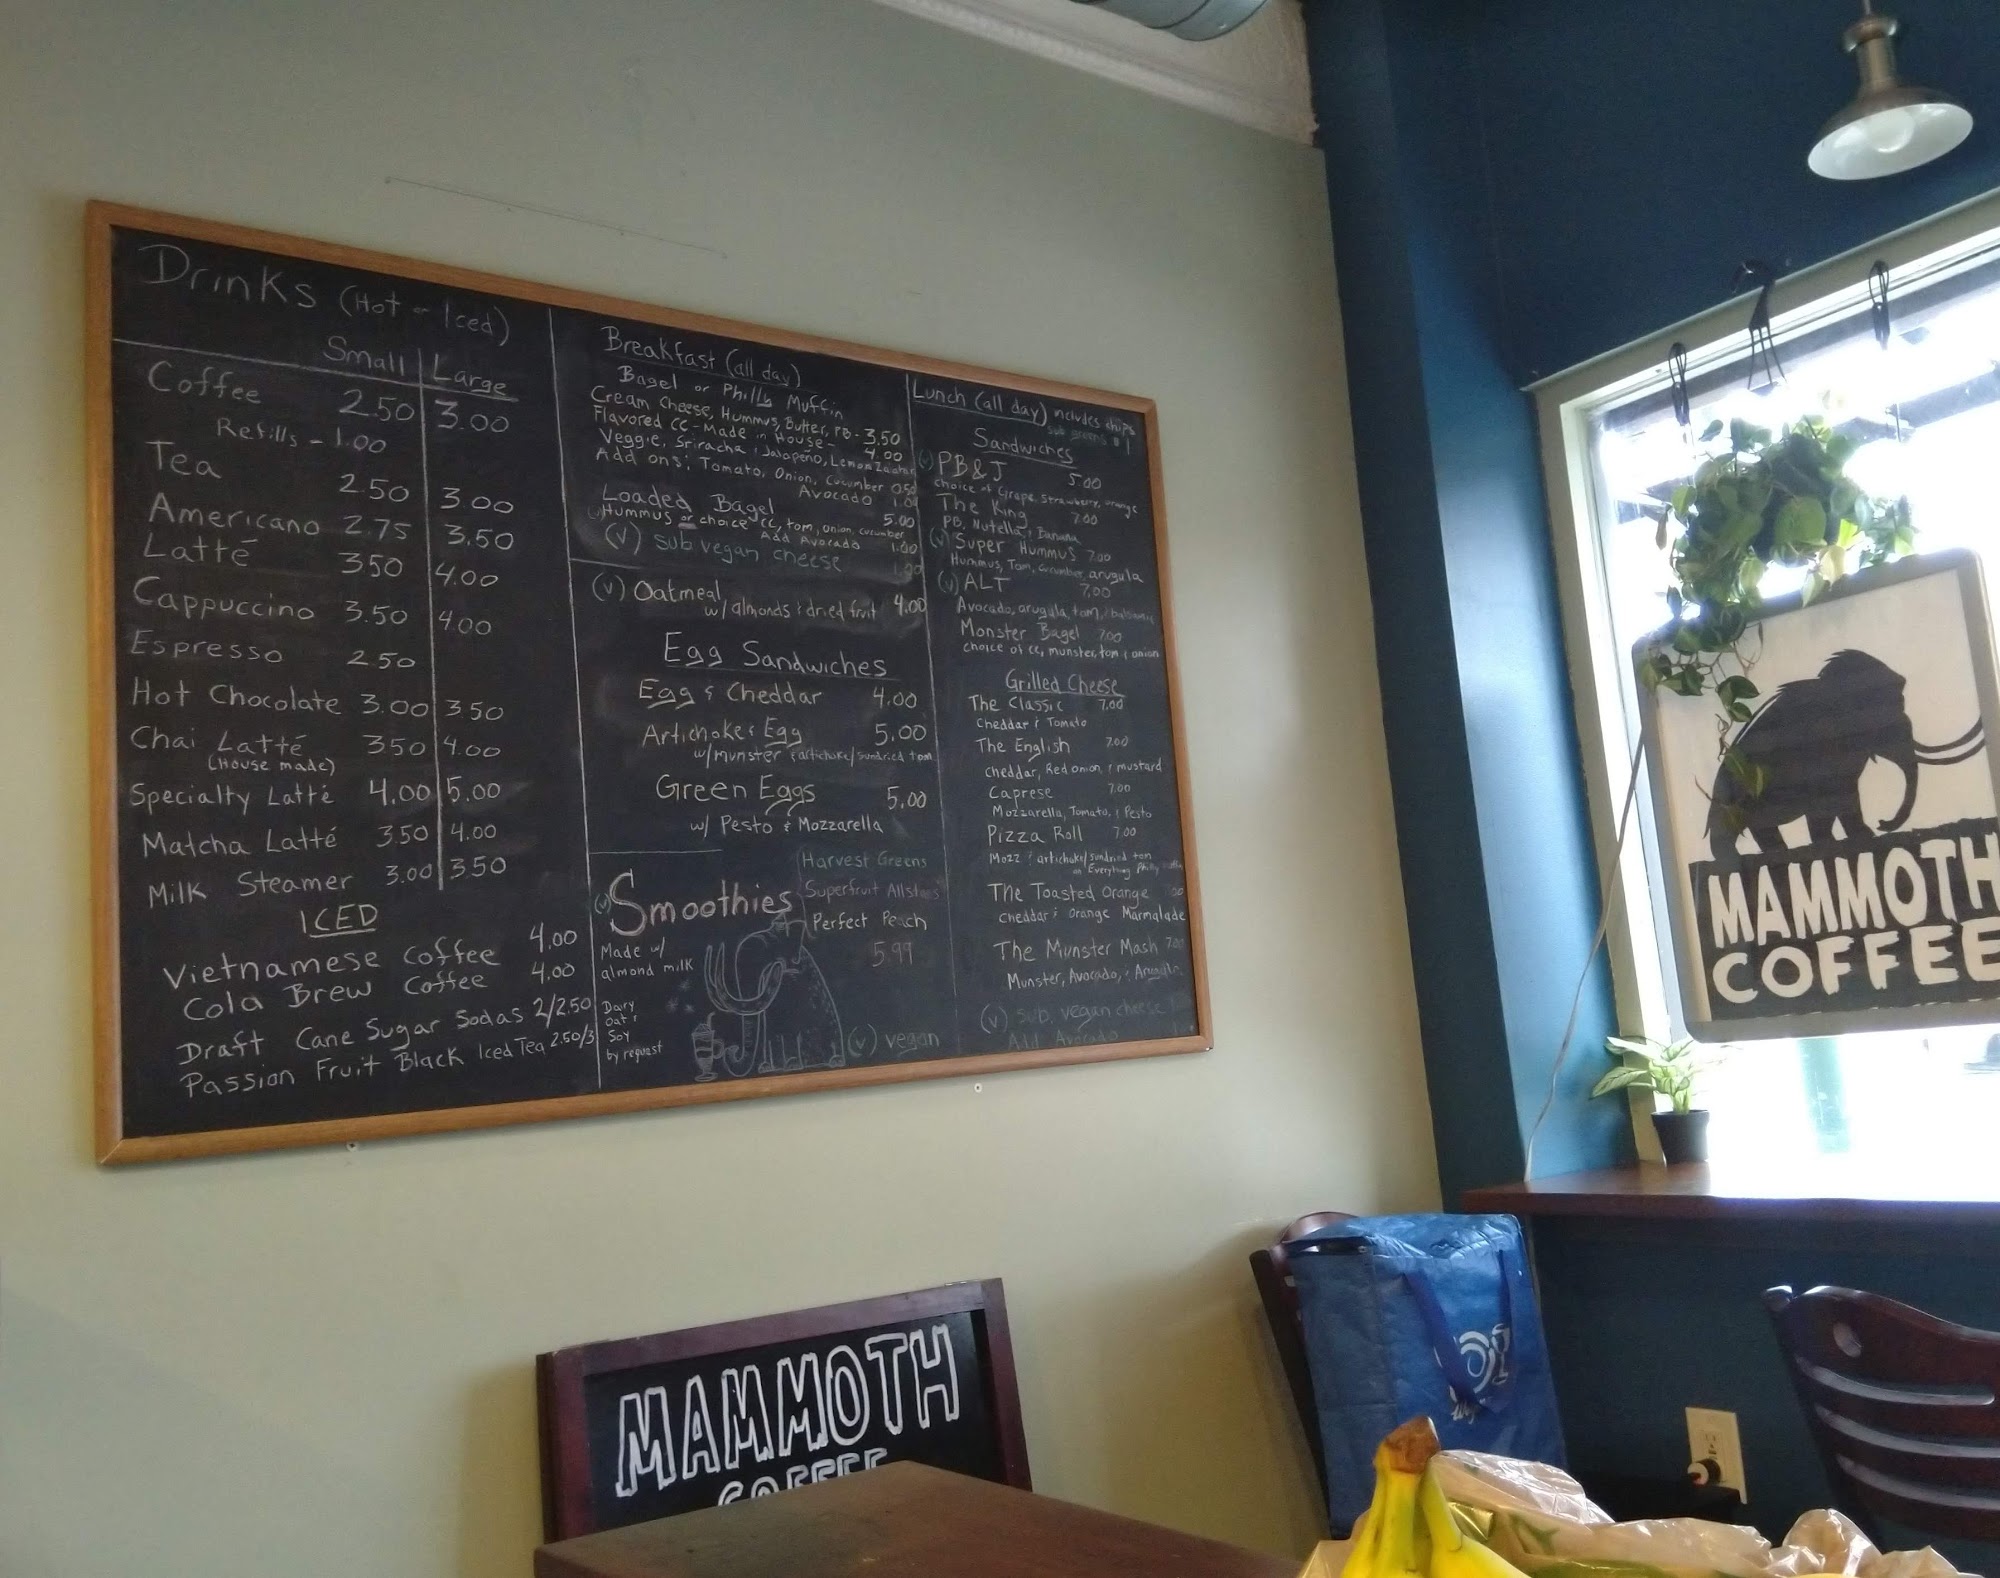 Drinks (Hot or Iced)
Small Large
Coffee 2.50 3.00
Refills - 1.00
Tea 2.50 3.00
Americano 2.75 3.50
Latté 350 4.00
Cappuccino 3.50 4.00
Espresso 2.50
Hot Chocolate 3.00 3.50
Chai Latté 350 4.00
(House made)
Specialty Latté 4.00 5.00
Matcha Latté 3.50 4.00
Milk Steamer 3.00 3.50
ICED
Vietnamese Coffee 4.00
Cola Brew Coffee 4.00
Draft Cane Sugar Sodas 2/2.50
Passion Fruit Black Iced Tea 2.50/3
Breakfast (all day)
Bagel or Philly Muffin
Cream Cheese, Hummus, Butter, PB - 3.50
Flavored CC - Made in House - 4.00
Veggie, Sriracha, Jalapeño, Lemon
Add ons: Tomato, Onion, Cucumber 0.50
Avocado 1.00
Loaded Bagel 5.00
Hummus or choice CC, tom, onion, cucumber
Add Avocado 1.00
(v) sub vegan cheese 1.00
(v) Oatmeal 4.00
w/ almonds & dried fruit
Egg Sandwiches
Egg & Cheddar 4.00
Artichoke & Egg 5.00
w/munster & artichoke/sundried tom
Green Eggs 5.00
w/ Pesto & Mozzarella
(v) Smoothies
Made w/
almond milk
Dairy
Oat &
Soy
by request
Harvest Greens
Superfruit Allstars
Perfect Peach
5.99
(v) vegan
Lunch (all day) includes chips
sub greens $1
Sandwiches
(v) PB&J 5.00
choice of Grape, Strawberry, orange
The King 7.00
PB, Nutella, & Banana
(v) Super Hummus 7.00
Hummus, Tom, cucumber, arugula
(v) ALT 7.00
Avocado, arugula, tom, & balsamic
Monster Bagel 7.00
choice of CC, munster, tom & onion
Grilled Cheese
The Classic 7.00
Cheddar & Tomato
The English 7.00
Cheddar, Red onion, & mustard
Caprese 7.00
Mozzarella, Tomato, & Pesto
Pizza Roll 7.00
Mozz & artichoke/sundried tom
on Everything Philly
The Toasted Orange
Cheddar & Orange Marmalade
The Munster Mash 7.00
Munster, Avocado, & Arugula
(v) sub vegan cheese
Add Avocado
MAMMOTH
COFFEE
MAMMOTH
COFFEE